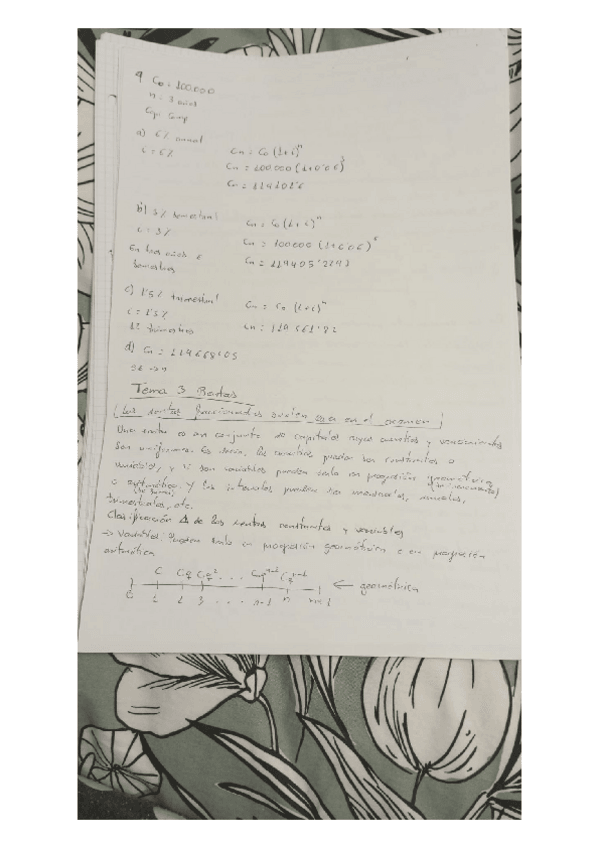 9 C₀ = 100.000
n = 3 años
Cap. Comp
a) 6% anual
i = 6%
Cn = C₀ (1+i)ⁿ
Cn = 100000 (1+0'06)³
Cn = 119101'6
b) 3% semestral
i = 3%
En tres años 6
semestres
Cn = C₀ (1+i)ⁿ
Cn = 119405'22
c) 1'5% trimestral
i = 1'5%
12 trimestres
Cn = C₀ (1+i)ⁿ
Cn = 119561'82
d) Cn = 119668'05
Tema 3 Rentas
(Las rentas fraccionadas suelen en el examen)
Una renta es un conjunto de capitales cuyas cuantías y vencimientos
son uniformes. Es decir, las cuantías pueden ser constantes o
variables, y si son variables pueden serlo en progresión geométrica
o aritmética. Y los intervalos pueden ser mensuales, anuales,
trimestrales, etc.
Clasificación de las rentas constantes y variables
→ Variables: Pueden serlo en progresión geométrica o en progresión
aritmética
C Cq Cq² ... Cqⁿ⁻² Cqⁿ⁻¹
0 1 2 3 ... n-1 n ← geométrica